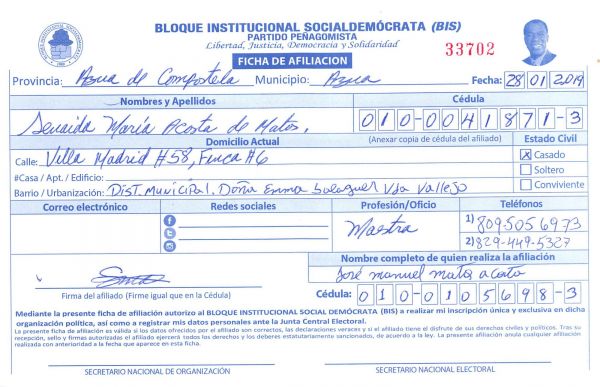 BLOQUE INSTITUCIONAL SOCIALDEMÓCRATA (BIS)
PARTIDO PEÑAGOMISTA
Libertad, Justicia, Democracia y Solidaridad
33702
FICHA DE AFILIACION
Provincia: Azua de Compostela Municipio: Azua Fecha: 28/01/2019
Nombres y Apellidos Cédula
Senaida María Acosta de Matos. 010-0041871-3
Domicilio Actual (Anexar copia de cédula del afiliado) Estado Civil
Calle: Villa Madrid #58, Finca #6 X Casado
#Casa / Apt. / Edificio: Soltero
Barrio / Urbanización: Dist. Municipal. Doña Emma Balaguer Vda Vallejo Conviviente
Correo electrónico Redes sociales Profesión/Oficio Teléfonos
Maestra 1) 809-505 6973
2) 829-449-5327
Nombre completo de quien realiza la afiliación
José manuel matos acosta
Firma del afiliado (Firme igual que en la Cédula) Cédula: 010-0105698-3
Mediante la presente ficha de afiliación autorizo al BLOQUE INSTITUCIONAL SOCIAL DEMÓCRATA (BIS) a realizar mi inscripción única y exclusiva en dicha
organización política, así como a registrar mis datos personales ante la Junta Central Electoral.
La presente ficha de afiliación es válida si los datos ofrecidos por el afiliado son correctos, las declaraciones veraces y si el afiliado tiene el disfrute de sus derechos civiles y políticos. Tras su
recepción, sello y firmas autorizadas el afiliado ejercerá todos los derechos y los deberes estatutariamente sancionados, de acuerdo a la ley. La presente afiliación anula cualquier afiliación
realizada con anterioridad a la fecha que aparece en esta ficha.
SECRETARIO NACIONAL DE ORGANIZACIÓN SECRETARIO NACIONAL ELECTORAL